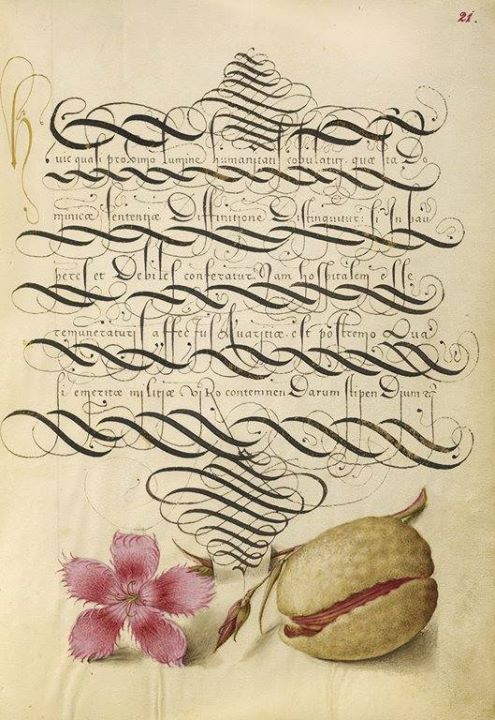 21.
Huic quasi proximo lumine humanitati copulatur quæ ita Do
minicæ sententiæ Diffinitione Distinguitur: si In hau
peres et Debiles conferatur. Nam hospitalem esse
remuneraturis affectus Avaritiæ est postremo Qua
si emeritæ militiæ viro contemnendarum stipendium